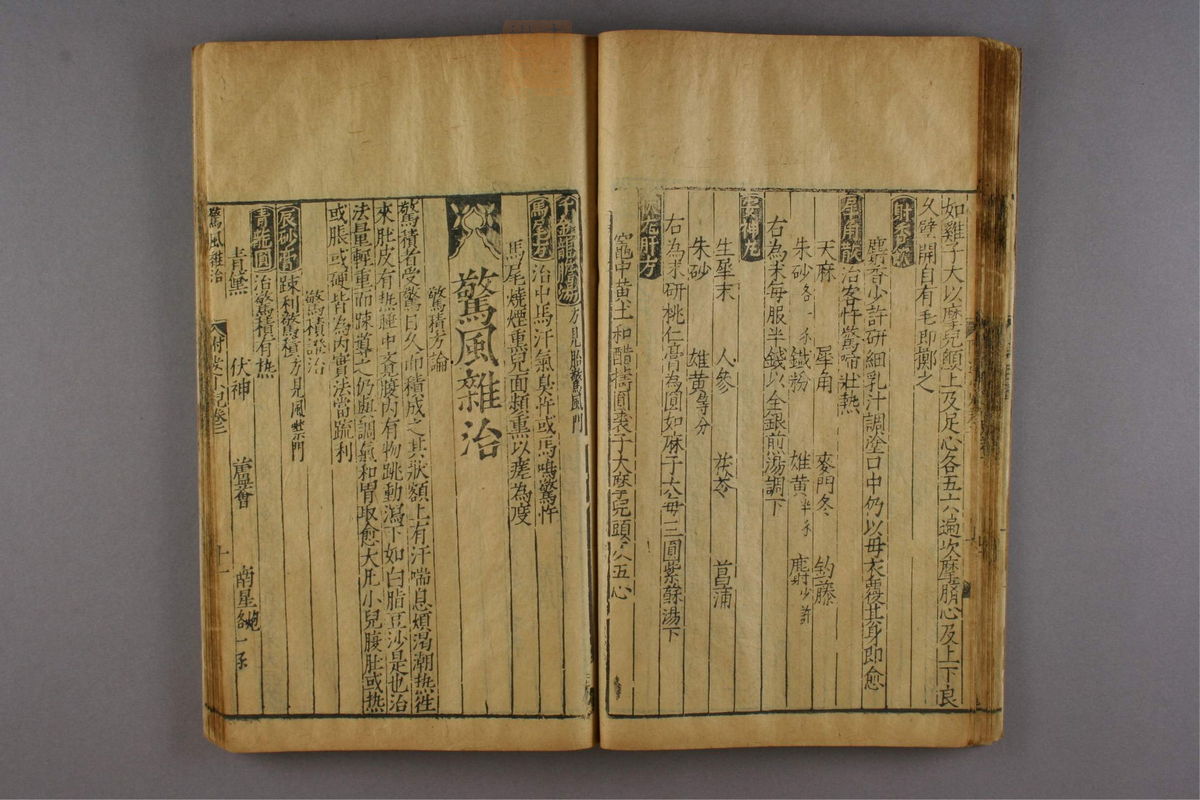 如雞子大以摩兒顖上及足心各五六遍次摩臍心及上下良
久擘開自有毛即擲之
射香散
麝香少許研細乳汁調塗口中仍以母衣覆其身即愈
犀角散 治客忤驚啼壯熱
天麻 犀角 麥門冬 釣藤
朱砂各一錢 鐵粉 雄黃半錢 麝少許
右為末每服半錢以金銀煎湯調下
安神丸
生犀末 人參 茯苓 菖蒲
朱砂 雄黃各等分
右為末研桃仁膏為圓如麻子大每三圓紫蘇湯下
伏龍肝方
竈中黃土和醋擣圓衮子大摩兒頭及五心
千金龍膽湯 方見胎驚風門
馬尾方 治中馬汗氣臭忤或馬鳴驚忤
馬尾燒煙熏兒面頻熏以瘥為度
驚風雜治
驚積方論
驚積者受驚日久而積成之其狀額上有汗喘息煩渴潮热徃
來肚皮有热睡中㞃腹内有物跳動瀉下如白脂豆沙是也治
法量輕重而踈導之仍與調氣和胃取愈大凡小兒腹肚或热
或脹或硬皆為内實法當疏利
驚積證治
辰砂膏 踈利驚積方見風禁門
青龍圓 治驚積有热
青黛 伏神 蘆薈 南星炮各一錢
驚風雜治